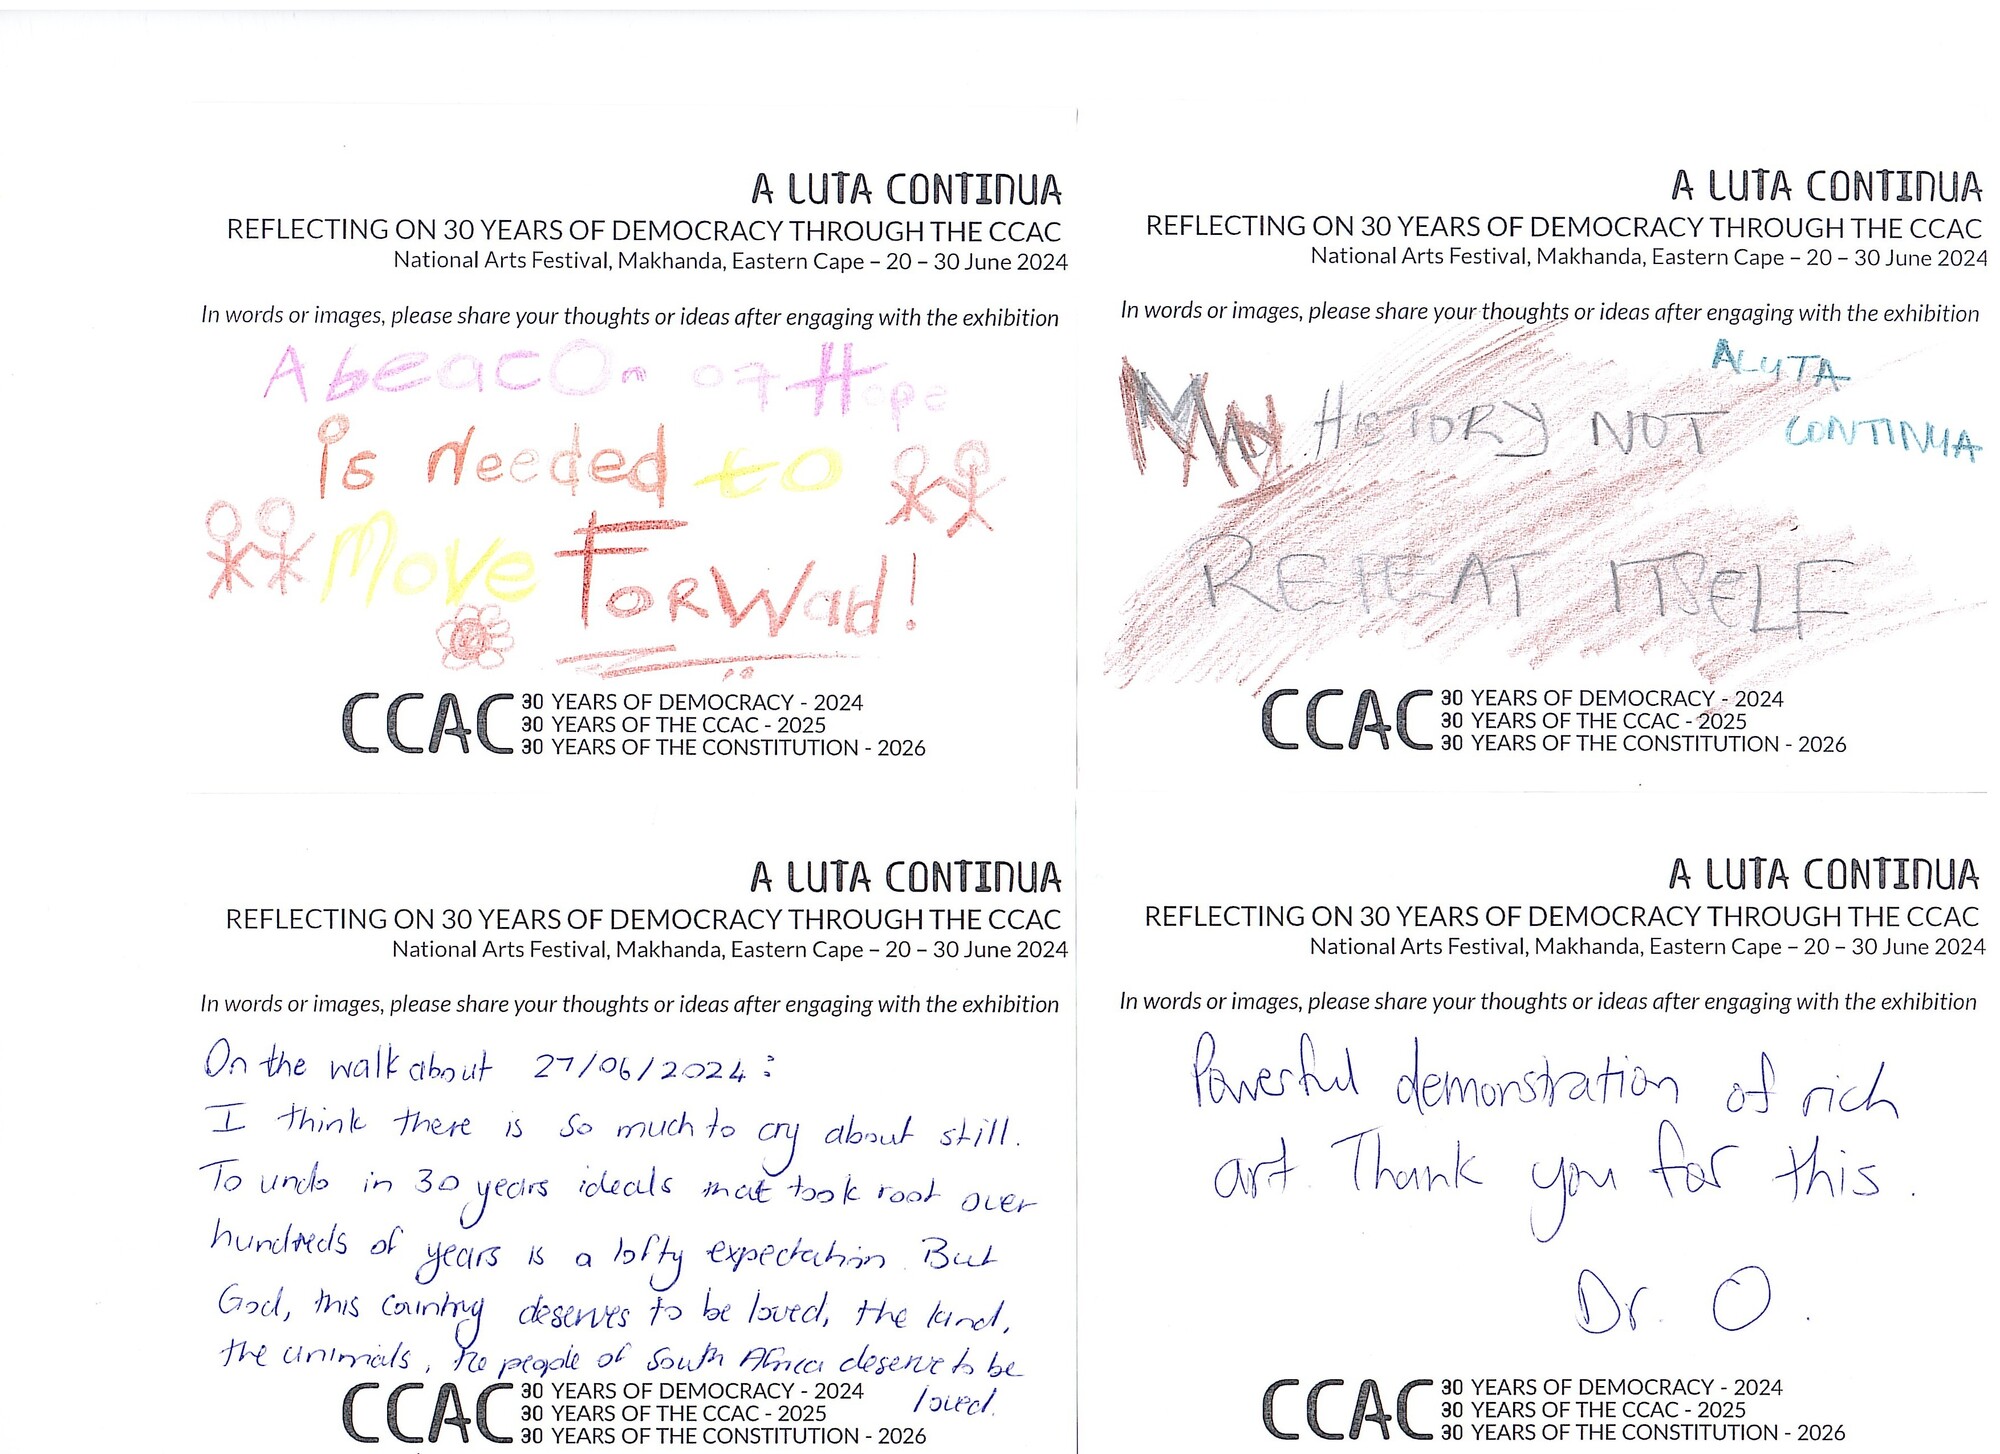 A LUTA CONTINUA
REFLECTING ON 30 YEARS OF DEMOCRACY THROUGH THE CCAC
National Arts Festival, Makhanda, Eastern Cape – 20 – 30 June 2024
In words or images, please share your thoughts or ideas after engaging with the exhibition
A beacOn of Hope
is needed to
Move ForWad!
CCAC
30 YEARS OF DEMOCRACY - 2024
30 YEARS OF THE CCAC - 2025
30 YEARS OF THE CONSTITUTION - 2026
A LUTA CONTINUA
REFLECTING ON 30 YEARS OF DEMOCRACY THROUGH THE CCAC
National Arts Festival, Makhanda, Eastern Cape – 20 – 30 June 2024
In words or images, please share your thoughts or ideas after engaging with the exhibition
ALUTA
CONTINUA
MAY HISTORY NOT
REPEAT ITSELF
CCAC
30 YEARS OF DEMOCRACY - 2024
30 YEARS OF THE CCAC - 2025
30 YEARS OF THE CONSTITUTION - 2026
A LUTA CONTINUA
REFLECTING ON 30 YEARS OF DEMOCRACY THROUGH THE CCAC
National Arts Festival, Makhanda, Eastern Cape – 20 – 30 June 2024
In words or images, please share your thoughts or ideas after engaging with the exhibition
On the walk about 27/06/2024:
I think there is so much to cry about still.
To undo in 30 years ideals that took root over
hundreds of years is a lofty expectation. But
God, this country deserves to be loved, the land,
the animals, the people of South Africa deserve to be
loved.
CCAC
30 YEARS OF DEMOCRACY - 2024
30 YEARS OF THE CCAC - 2025
30 YEARS OF THE CONSTITUTION - 2026
A LUTA CONTINUA
REFLECTING ON 30 YEARS OF DEMOCRACY THROUGH THE CCAC
National Arts Festival, Makhanda, Eastern Cape – 20 – 30 June 2024
In words or images, please share your thoughts or ideas after engaging with the exhibition
Powerful demonstration of rich
art. Thank you for this.
Dr. O.
CCAC
30 YEARS OF DEMOCRACY - 2024
30 YEARS OF THE CCAC - 2025
30 YEARS OF THE CONSTITUTION - 2026